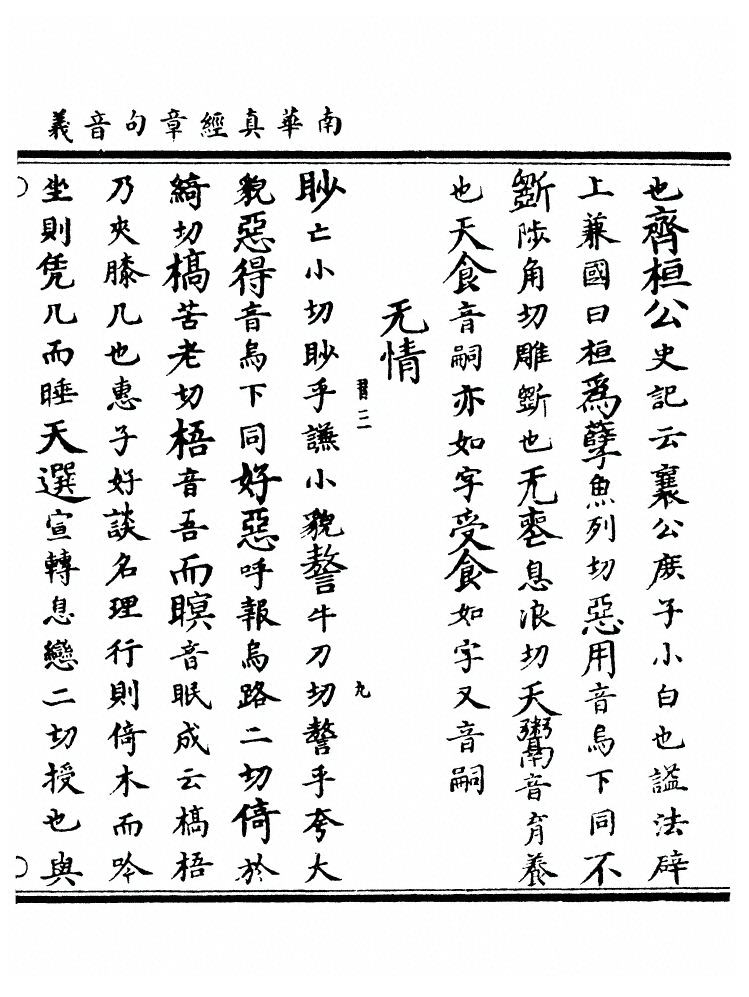 南華真經章句音義
也齊桓公史記云襄公庶子小白也謚法辟
上兼國曰桓為孽魚列切惡用音烏下同不
斲陟角切雕斲也无喪息浪切天鬻音育養
也天食音嗣亦如字受食如字又音嗣
无情
君三
九
眇亡小切眇乎謙小貌謷牛刀切謷乎夸大
貌惡得音烏下同好惡呼報烏路二切倚於
綺切槁苦老切梧音吾而瞑音眠成云槁梧
乃夾膝几也惠子好談名理行則倚木而吟
坐則凭几而睡天選宣轉息戀二切授也與